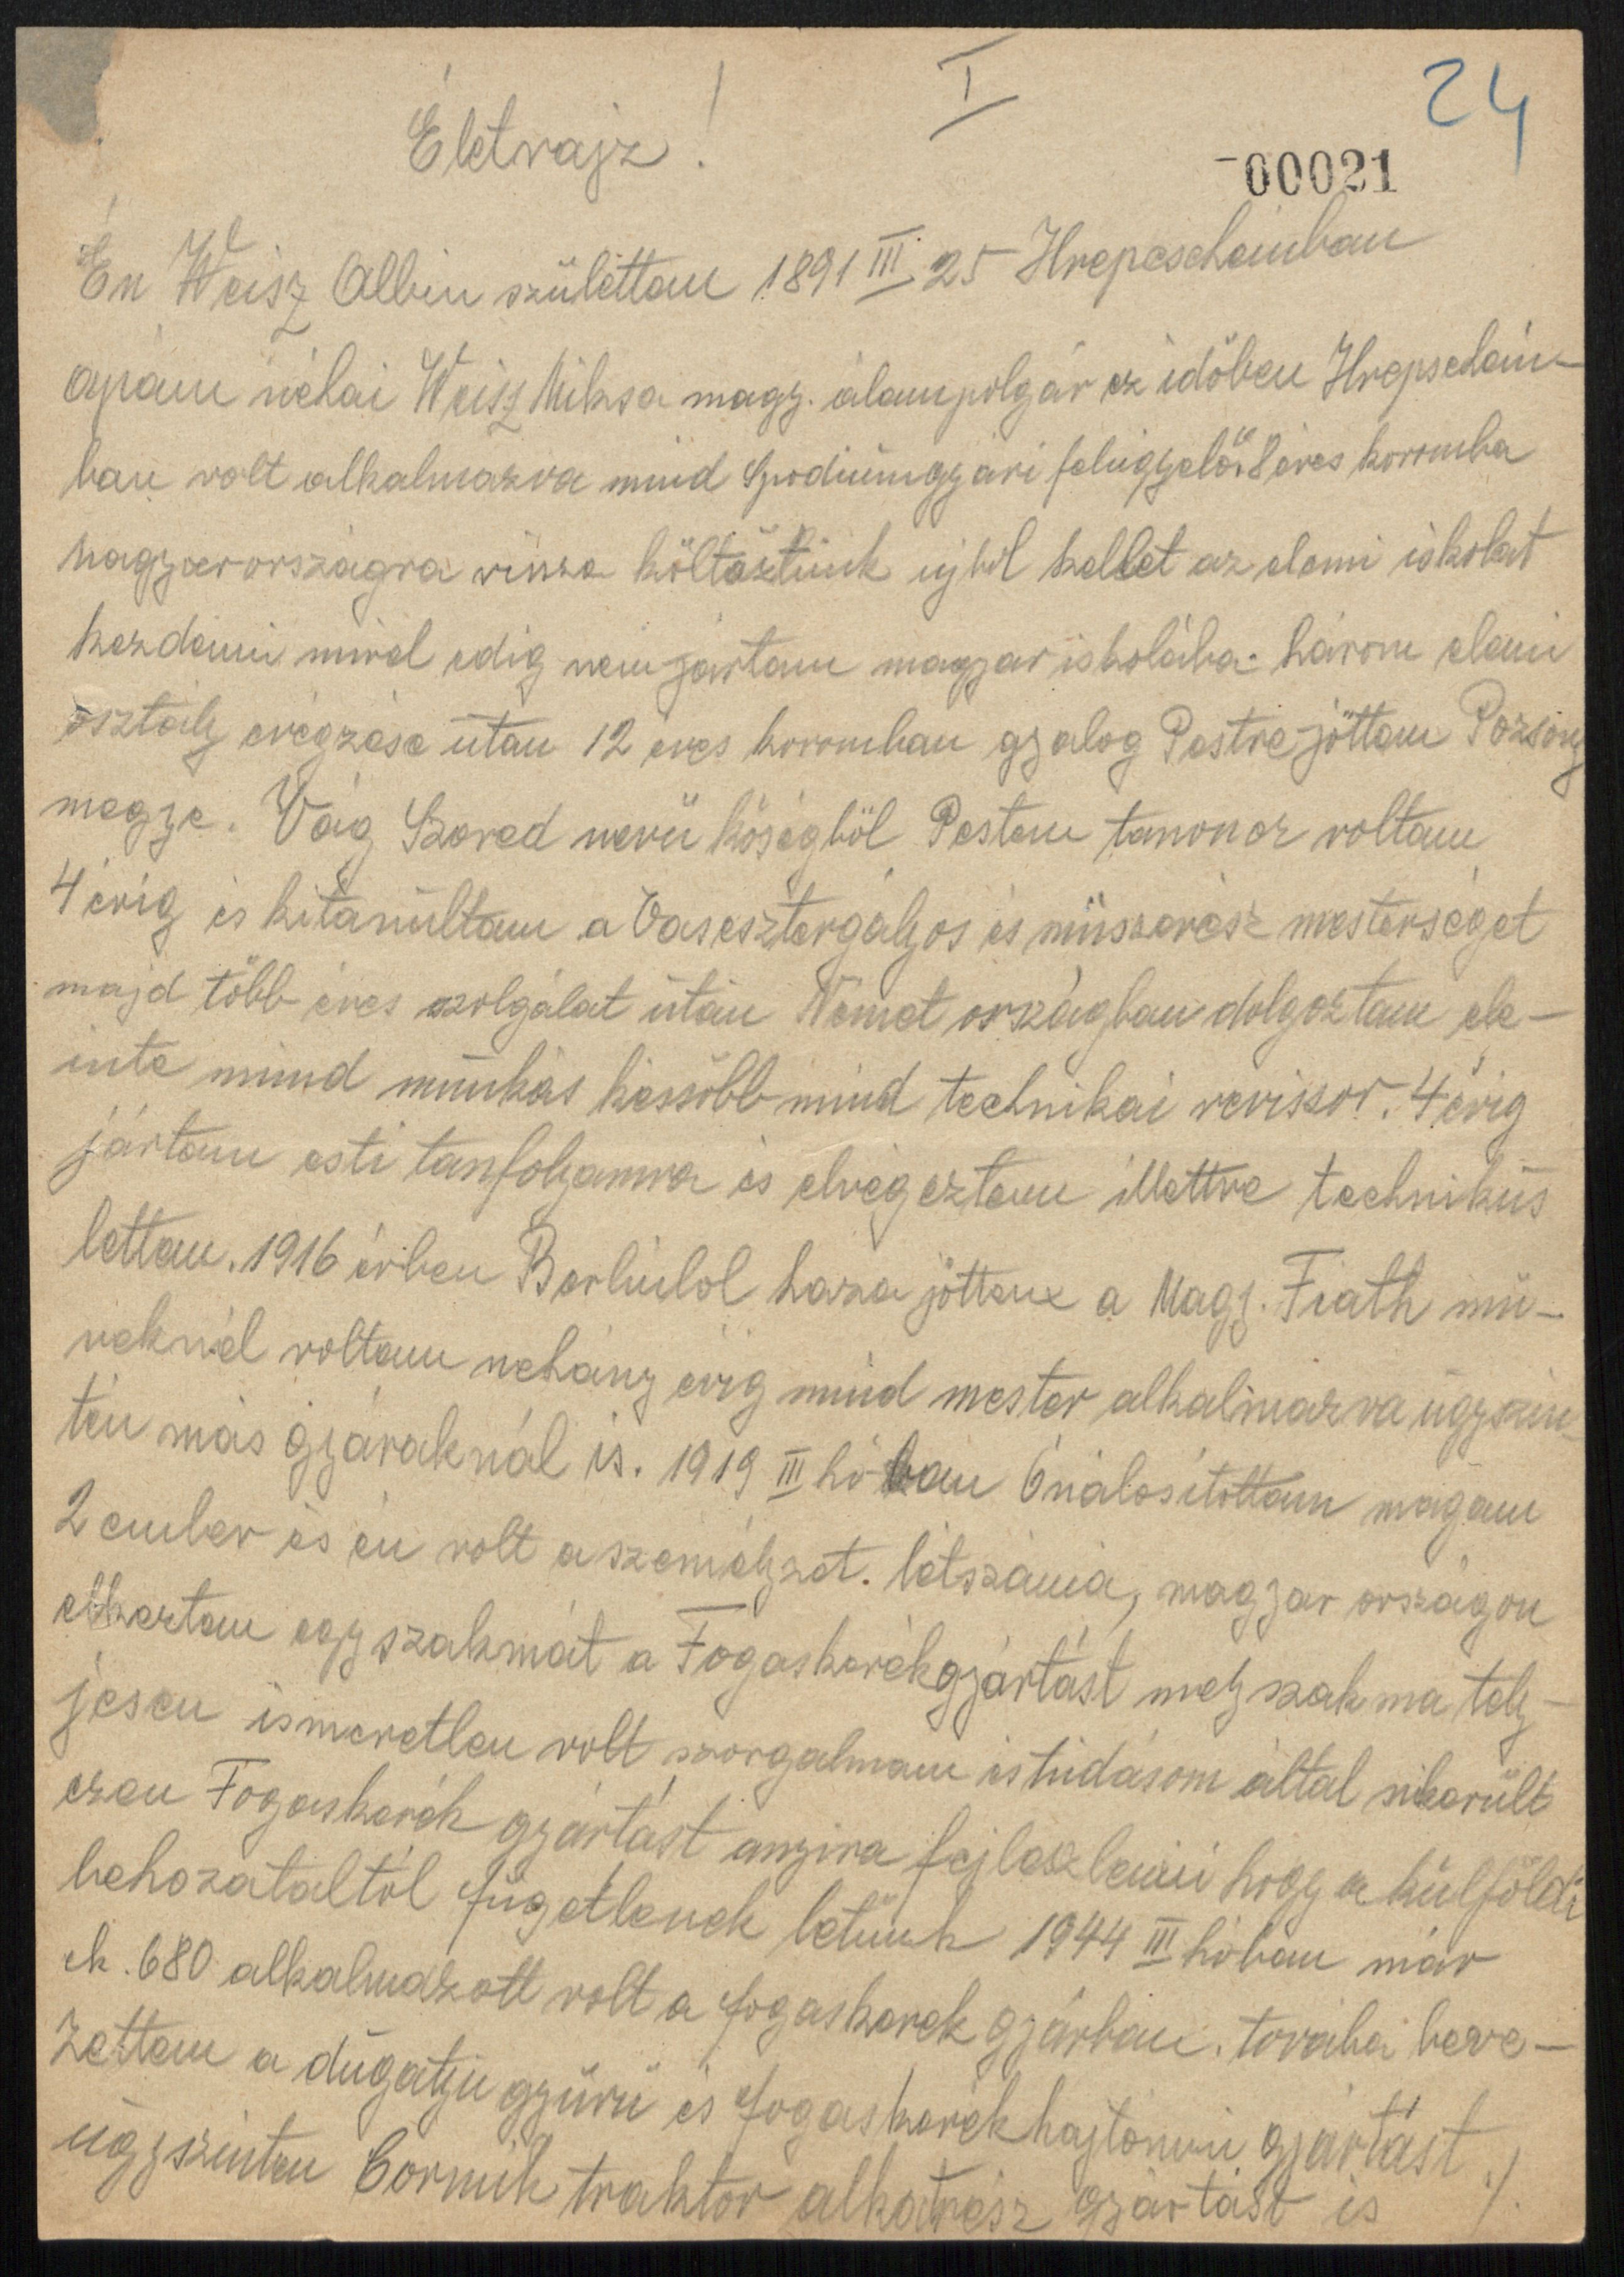 I
24
Életrajz!
00021
Én Weisz Albin születtem 1891 III 25 Hrepescheinban
apám néhai Weisz Miksa magy. álampolgár ez időben Hrepschein-
ban volt alkalmazva mind Spodiumgyári felügyelő. 8 éves koromba
magyarországra vissza költöztünk ujbol kellet az elemi iskolat
kezdeni mivel edig nem jártam magyar iskolába. három elemi
osztály evégzése után 12 éves koromban gyalog Pestre jöttem Pozsony
megye. Vág Szered nevü köségböl Pesten tanoncz voltam
4 évig és kitanúltam a Vasesztergályos és müszerész mesterséget
majd több éves szolgálat után Német országban dolgoztam ele-
inte mind munkás késsöbb mind technikai revissor. 4 évig
jártam esti tanfolyamra és elvégeztem illettve technikus
lettem. 1916 évben Berlinlol haza jöttem a Magy. Fiath mü-
veknél voltam nehány évig mind mester alkalmazva úgyszin-
tén más gyáraknál is. 1919 III hó ban Önálosítottam magam
2 ember és én volt a személyzet. létszáma, magyar országon
elkeztem egy szakmát a Fogaskerékgyártást mely szakma tely-
jesen ismeretlen volt szorgalmam és tudásom által sikerült
ezen Fogaskerék gyártást anyira fejleszteni hogy a külföldi
behozataltól fügetlenek letünk 1944 III hóban már
ck. 680 alkalmazott volt a fogaskerek gyárban. továba beve-
zettem a dúgatyu gyürü és fogaskerékhajtómü gyártást
úgyszinten Cormik traktor alkatrész gyártást is ./.